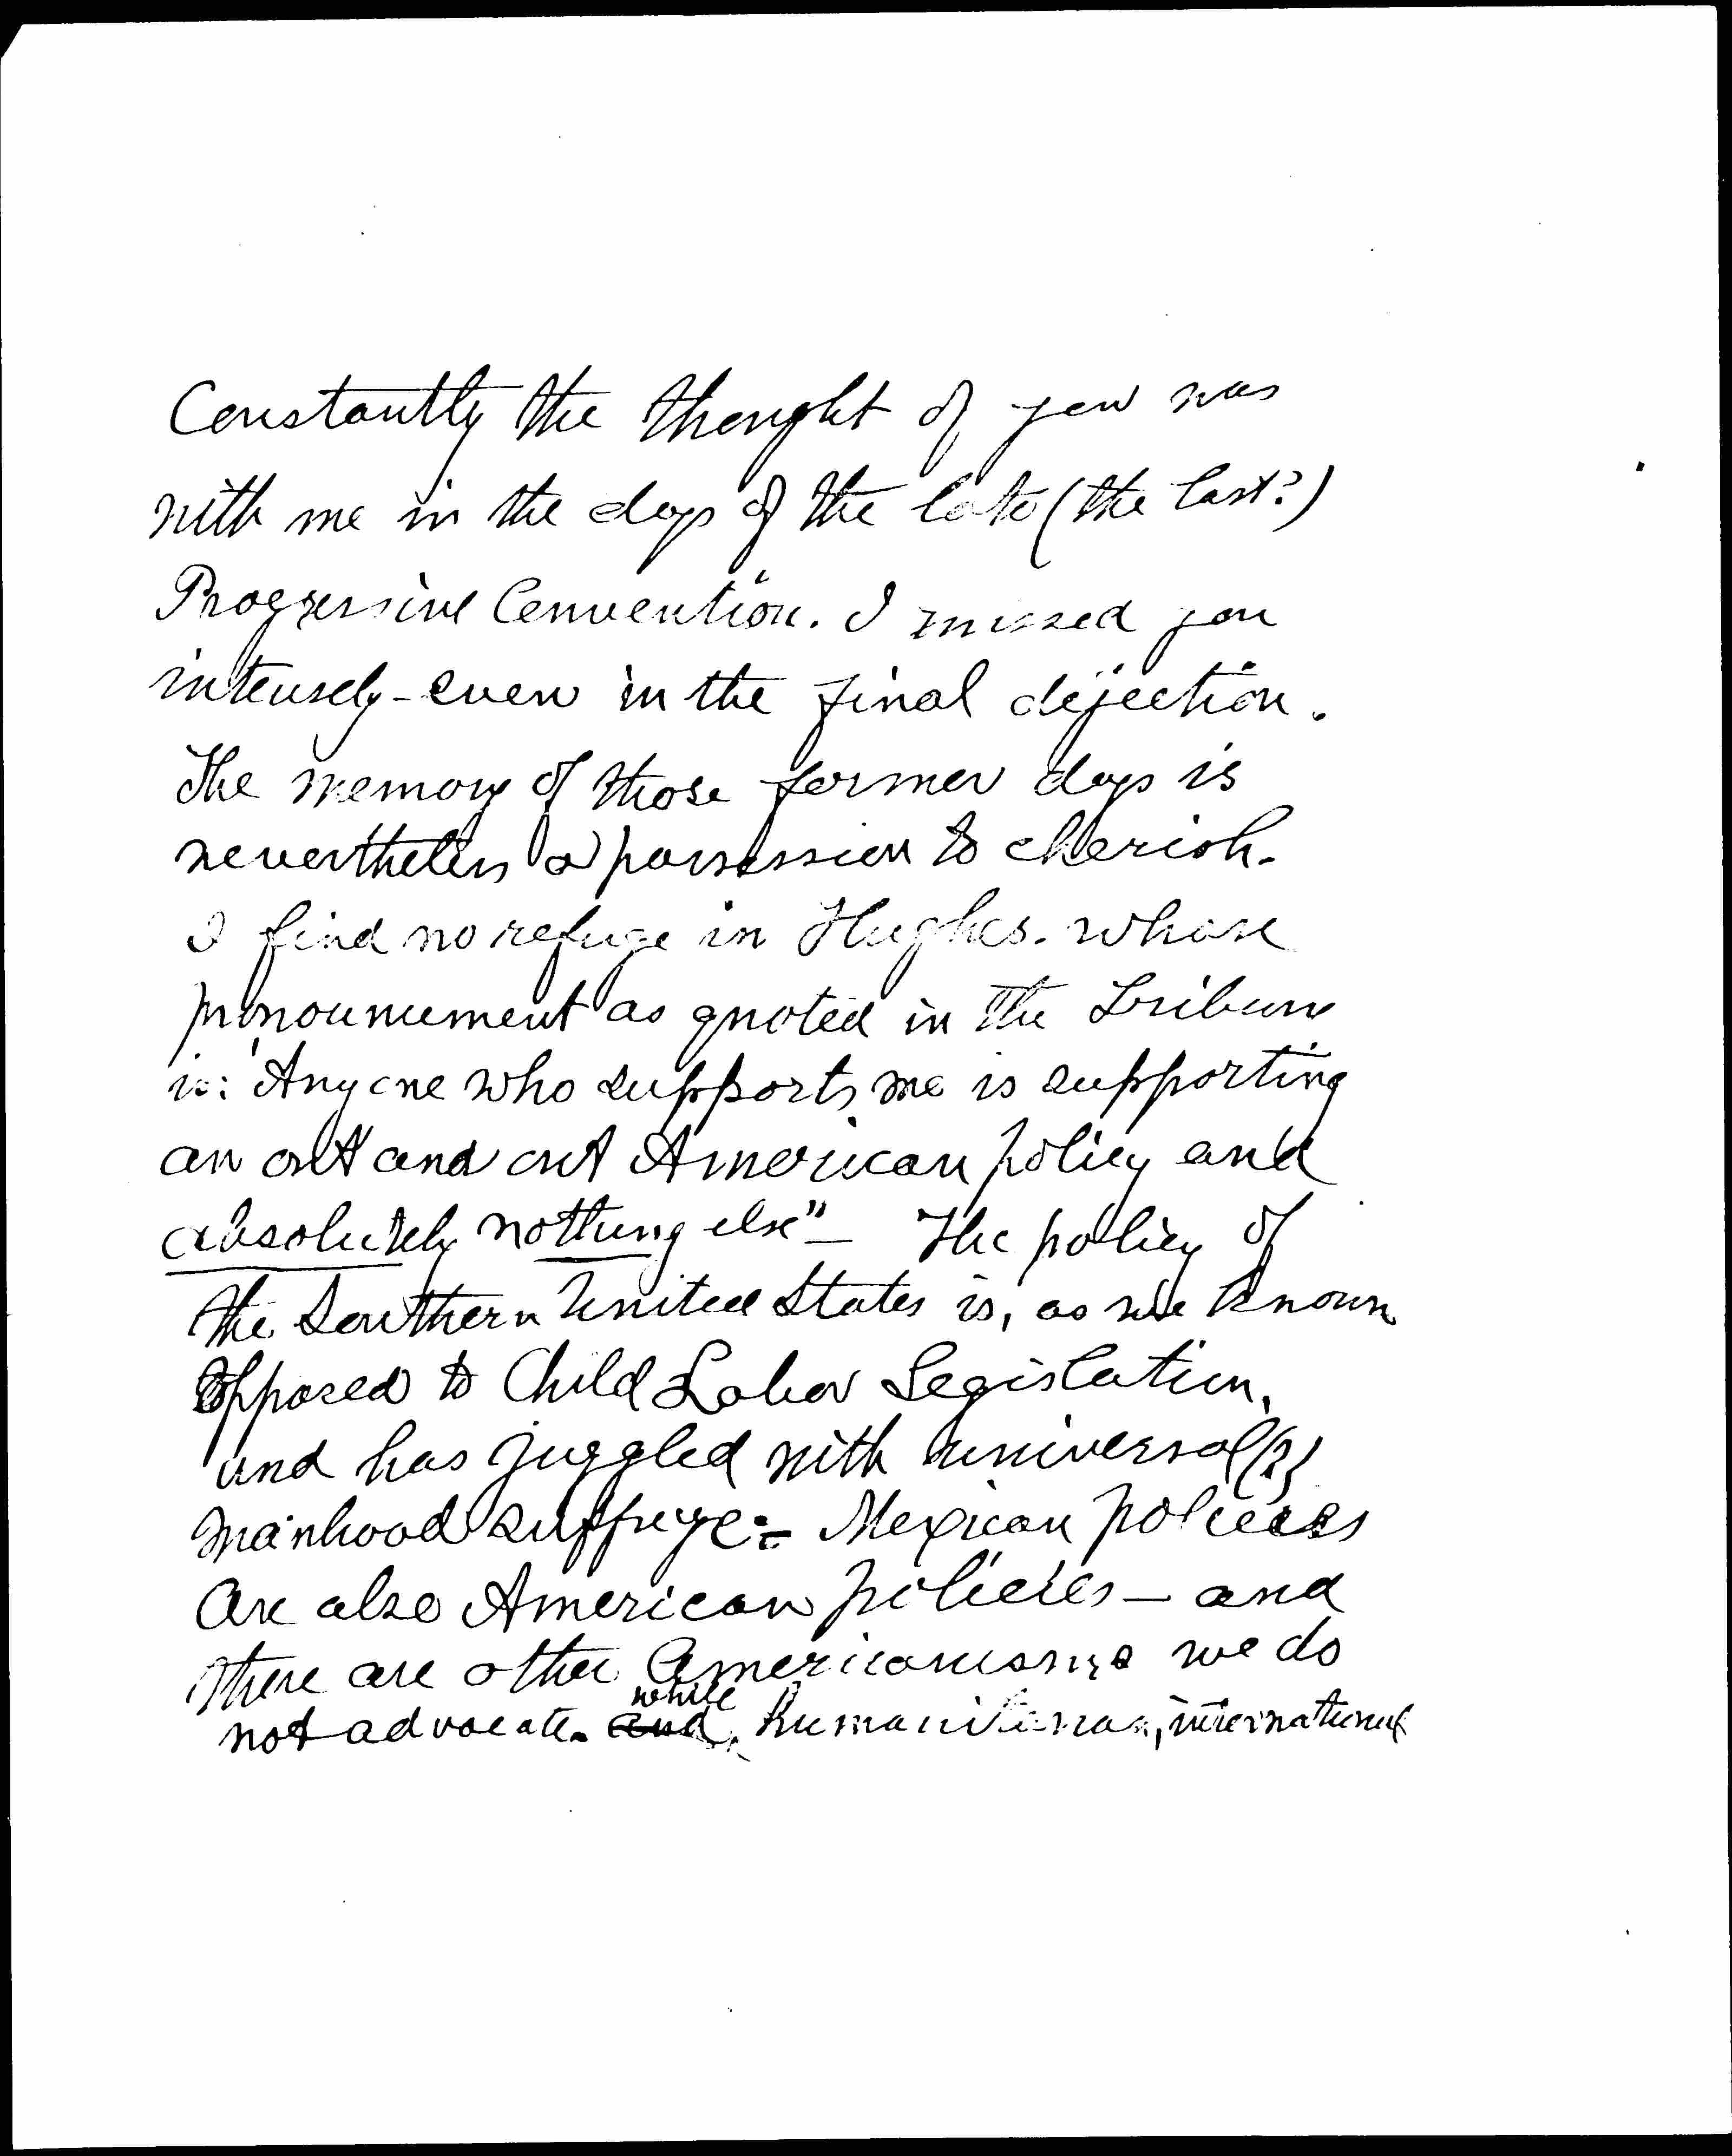 Constantly the thought of you was
with me in the days of the late (the last?)
Progressive Convention. I missed you
intensely - even in the final dejection.
The memory of those former days is
nevertheless a possession to cherish.
I find no refuge in Hughes. whose
pronouncement as quoted in the Tribune
is: "Any one who supports me is supporting
an out and out American policy and
absolutely nothing else" - The policy of
the Southern United States is, as we know
opposed to Child Labor Legislation,
and has juggled with universal (?)
manhood suffrage:- Mexican policies
are also American policies - and
there are other Americanisms we do
not advocate. and while humanitarian, international